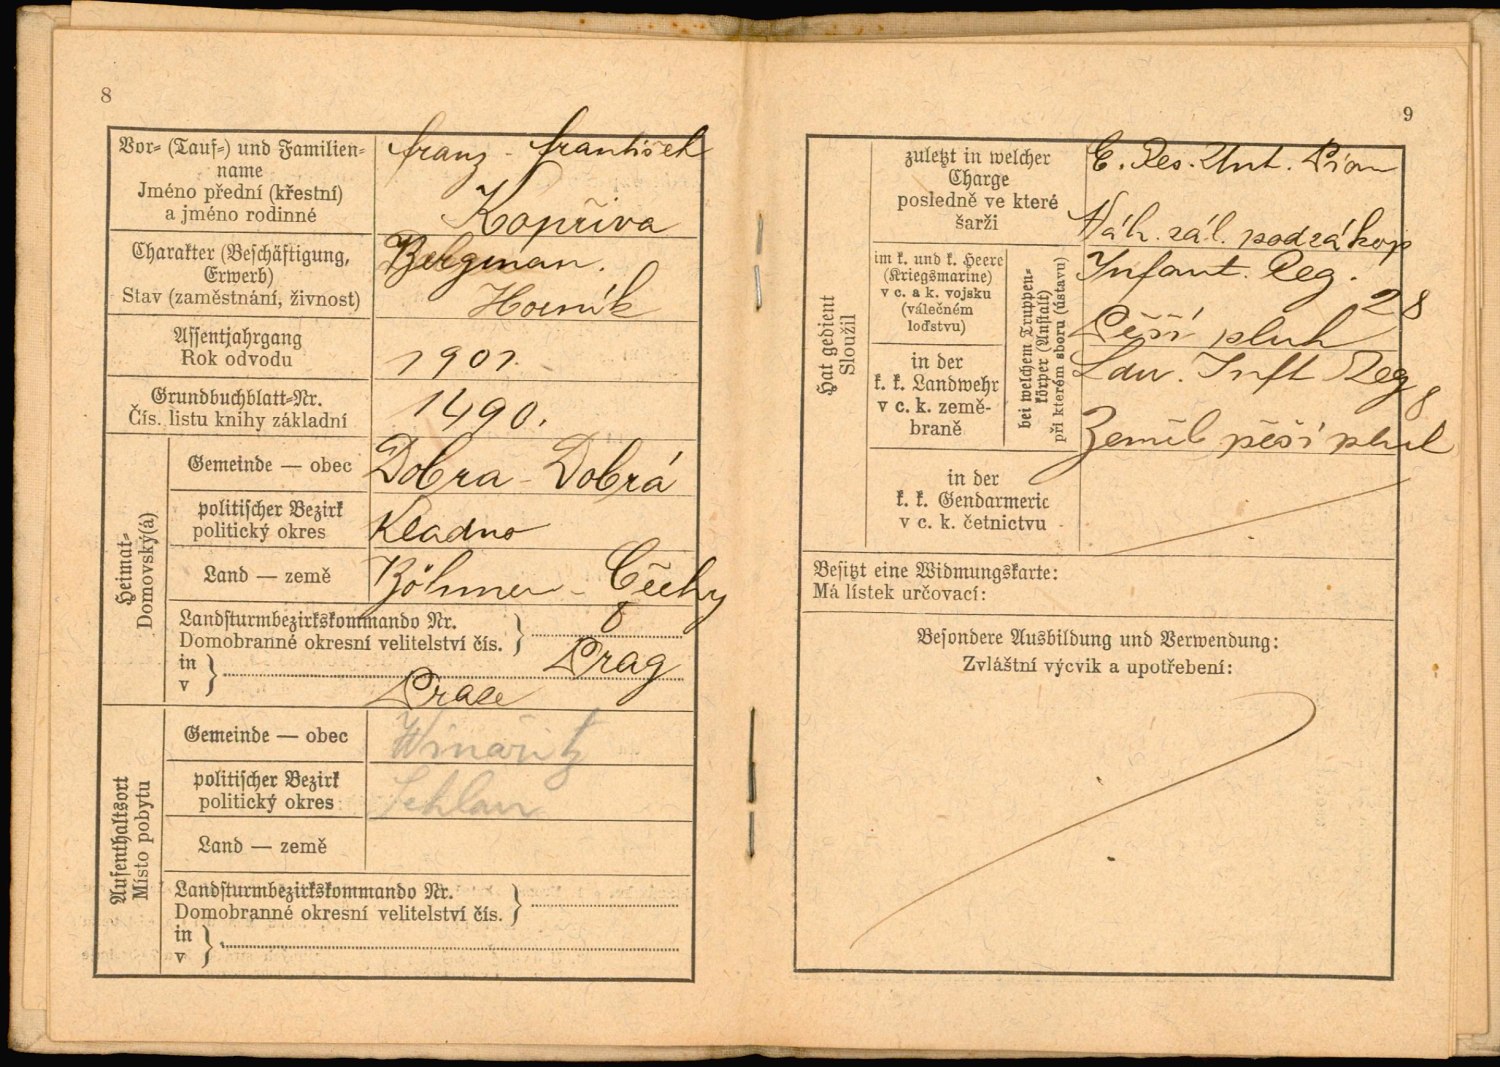 8
Vor- (Tauf-) und Familien-
name
Jméno přední (křestní)
a jméno rodinné
Franz - František
Kopřiva
Charakter (Beschäftigung,
Erwerb)
Stav (zaměstnání, živnost)
Bergman.
Horník
Assentjahrgang
Rok odvodu
1901.
Grundbuchblatt-Nr.
Čís. listu knihy základní
1490.
Heimat-
Domovský(á)
Gemeinde — obec
Dobra - Dobrá
politischer Bezirk
politický okres
Kladno
Land — země
Böhmen - Čechy
Landsturmbezirkskommando Nr.
Domobranné okresní velitelství čís.
8
in
v
Prag
Praze
Aufenthaltsort
Místo pobytu
Gemeinde — obec
Winařitz
politischer Bezirk
politický okres
Schlan
Land — země
Landsturmbezirkskommando Nr.
Domobranné okresní velitelství čís.
in
v
9
Hat gedient
Sloužil
zuletzt in welcher
Charge
posledně ve které
šarži
E. Res. Unt. Pion
Náh. zál. podzákop
im k. und k. Heere
(Kriegsmarine)
v c. a k. vojsku
(válečném
loďstvu)
bei welchem Truppen-
körper (Anstalt)
při kterém sboru (ústavu)
Infant. Reg.
28
Pěší pluk
in der
k. k. Landwehr
v c. k. země-
braně
Ldw. Inft Reg
8
Zeměb pěší pluk
in der
k. k. Gendarmerie
v c. k. četnictvu
Besitzt eine Widmungskarte:
Má lístek určovací:
Besondere Ausbildung und Verwendung:
Zvláštní výcvik a upotřebení: